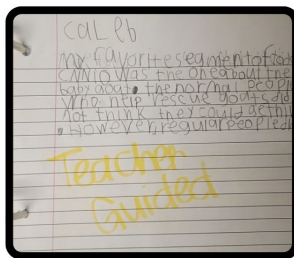 caleb
my favorite segment of
CNN10 was the one about the
baby goat. the normal people
who help rescue goats did
not think they could
. However, regular people
Teacher
Guided